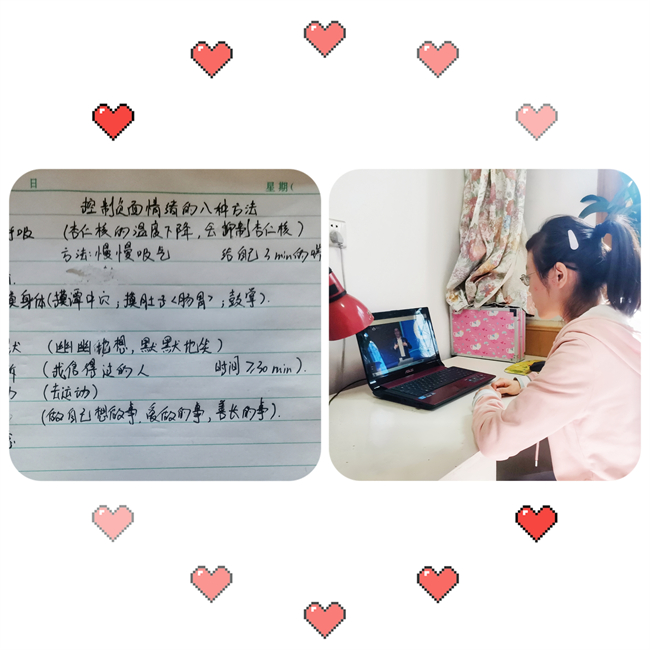 日 星期(
控制负面情绪的八种方法
呼吸 (杏仁核的温度下降,会抑制杏仁核)
方法:慢慢吸气 给自己3min的时
身体(摸潭中穴;摸肚子<肠胃>;鼓掌).
(幽幽地想,默默地笑)
(我信得过的人 时间>30min).
(去运动)
(做自己想做事,爱做的事,善长的事).
ASUS